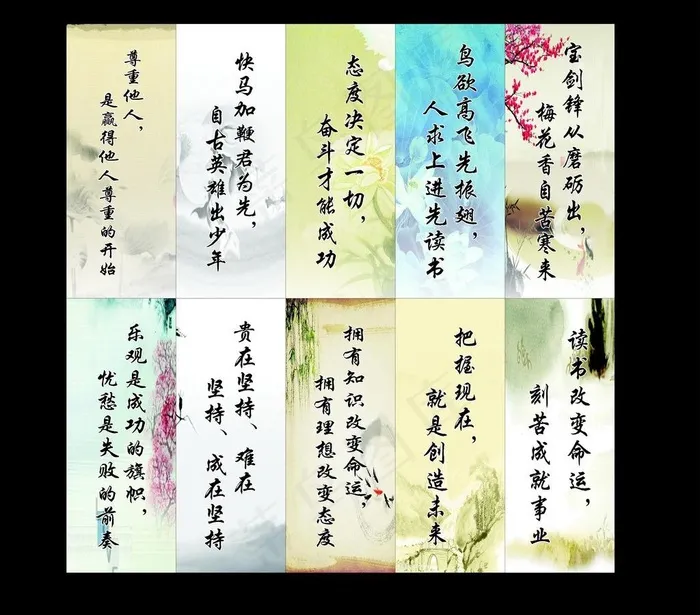 尊重他人，
是赢得他人尊重的开始
快马加鞭君为先，
自古英雄出少年
态度决定一切，
奋斗才能成功
鸟欲高飞先振翅，
人求上进先读书
宝剑锋从磨砺出，
梅花香自苦寒来
乐观是成功的旗帜，
忧愁是失败的前奏
贵在坚持、难在
坚持、成在坚持
拥有知识改变命运，
拥有理想改变态度
把握现在，
就是创造未来
读书改变命运，
刻苦成就事业